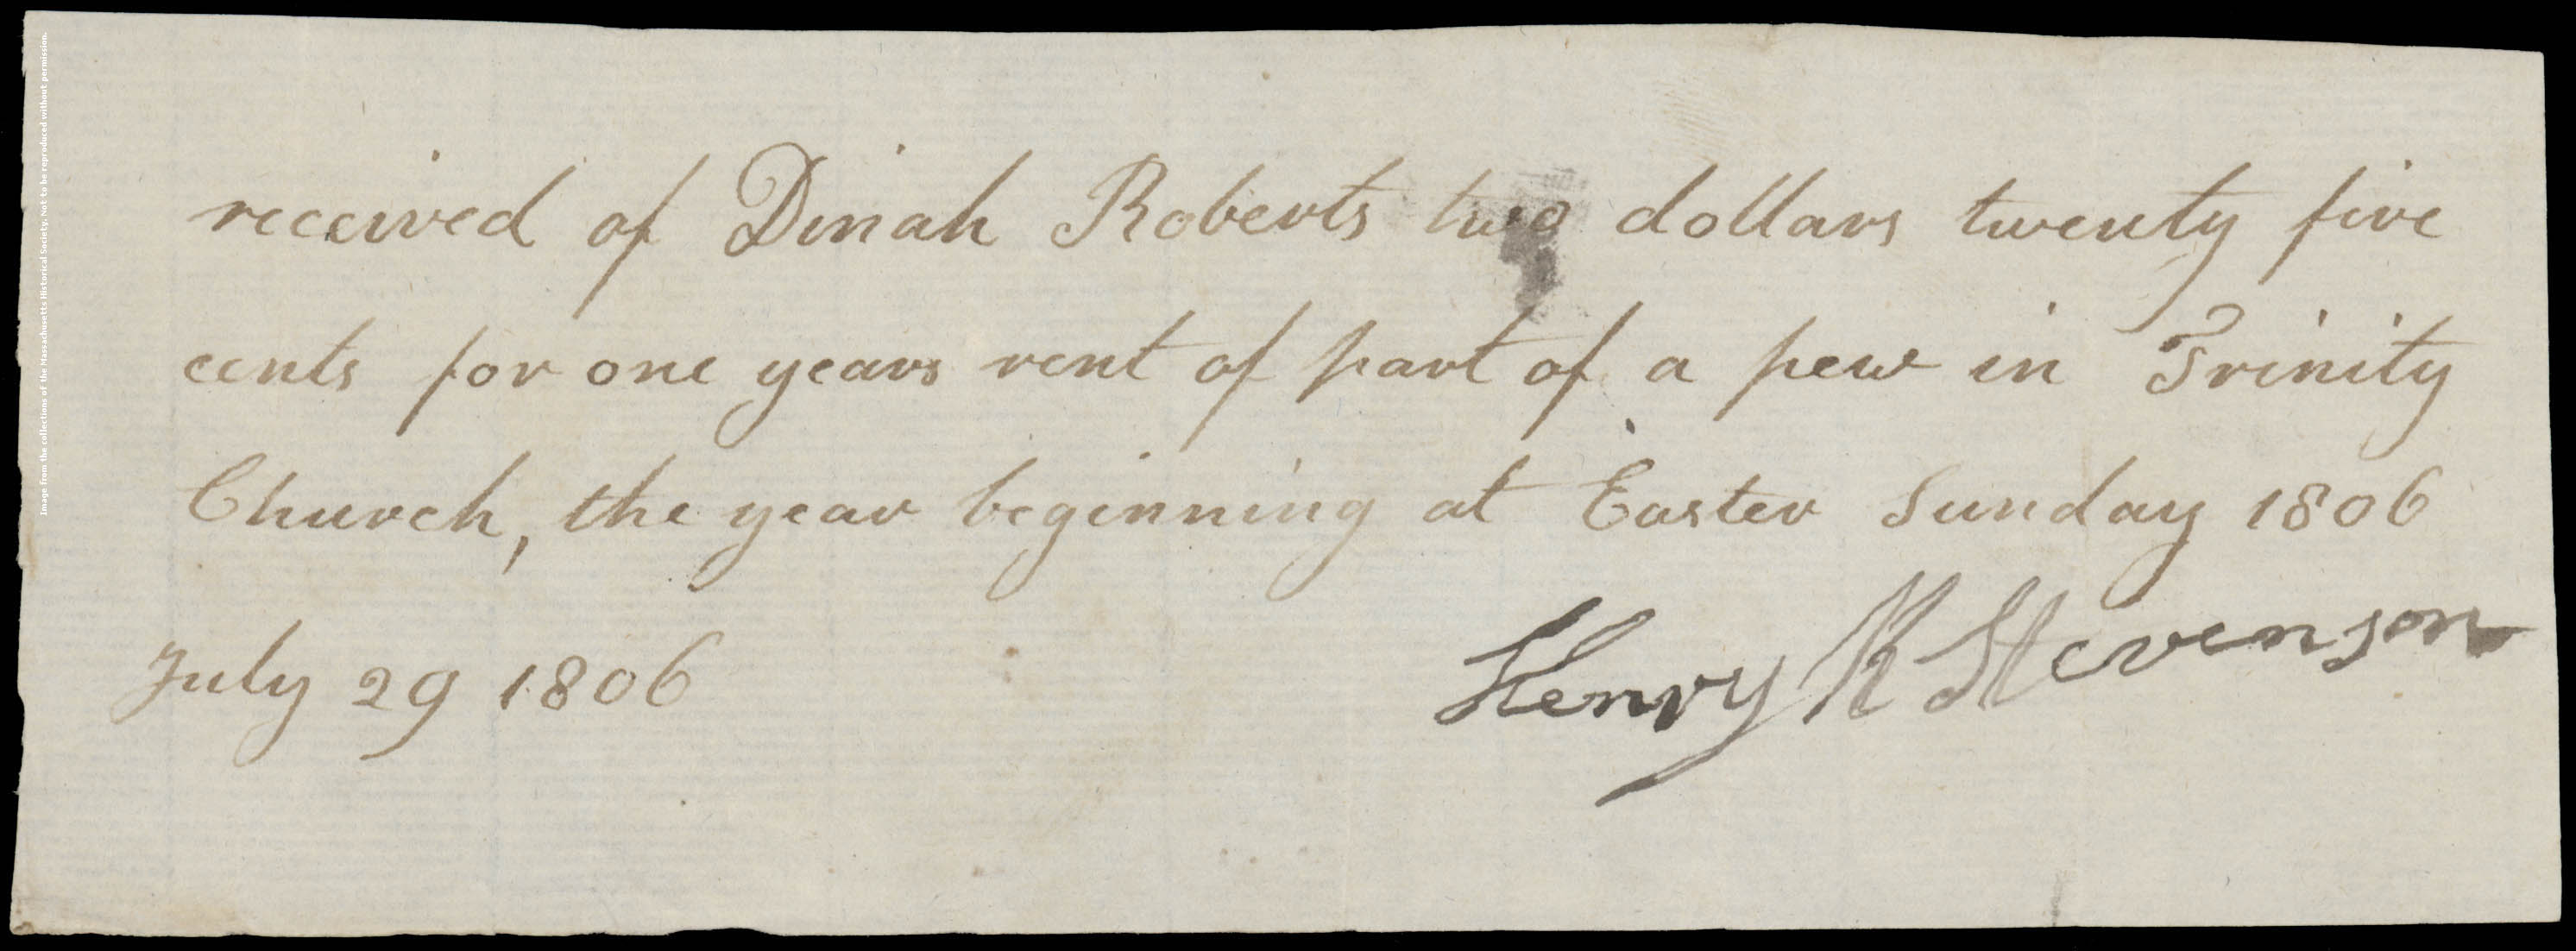 received of Dinah Roberts two dollars twenty five
cents for one years rent of part of a pew in Trinity
Church, the year beginning at Easter Sunday 1806
July 29 1806
Henry K Stevenson
Image from the collections of the Massachusetts Historical Society. Not to be reproduced without permission.